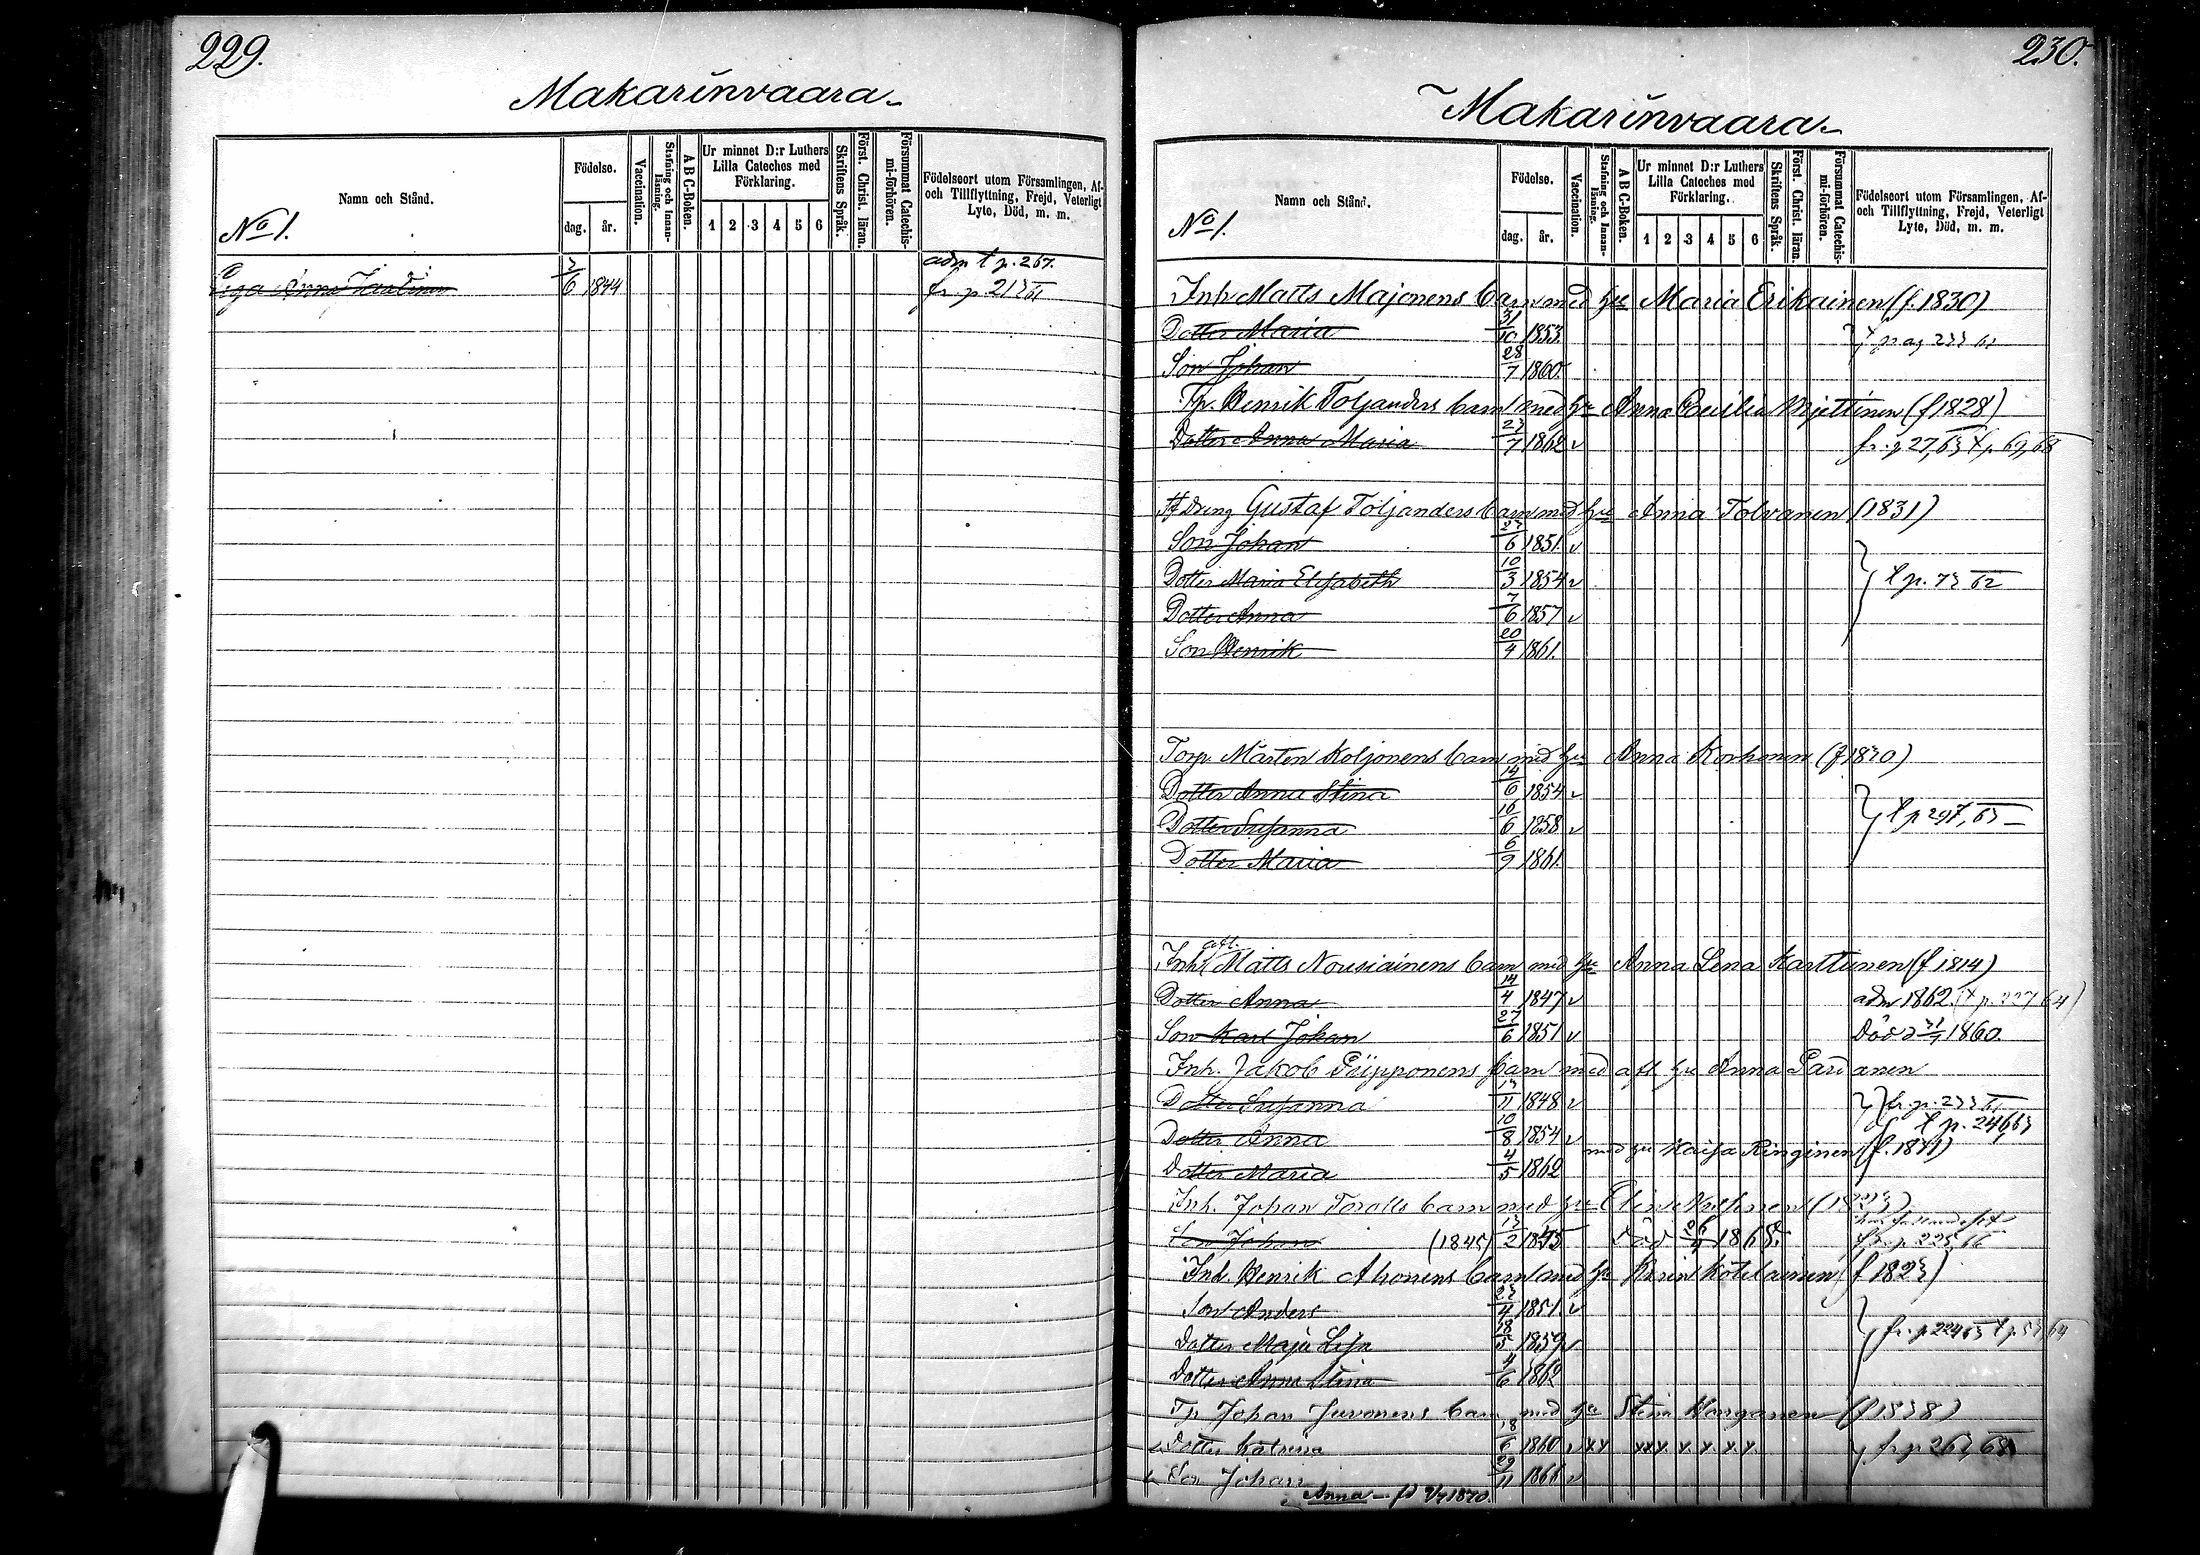 229.
Makarinvaara
Namn och Stånd.
No 1.
Födelse.
dag.
år.
Vaccination.
Stafning och Innan-läsning.
A B C-Boken.
Ur minnet D:r Luthers
Lilla Cateches med
Förklaring.
1 2 3 4 5 6
Skriftens Språk.
Först. Christ. läran.
Försummat Catechis-mi-förhören.
Födelseort utom Församlingen, Af-
och Tillflyttning, Frejd, Veterligt
Lyte, Död, m. m.
adm t p. 267.
6 1844 fr. p 213
230.
Makarinvaara
Namn och Stånd.
No 1.
Födelse.
dag.
år.
Vaccination.
Stafning och Innan-läsning.
A B C-Boken.
Ur minnet D:r Luthers
Lilla Cateches med
Förklaring.
1 2 3 4 5 6
Skriftens Språk.
Först. Christ. läran.
Försummat Catechis-mi-förhören.
Födelseort utom Församlingen, Af-
och Tillflyttning, Frejd, Veterligt
Lyte, Död, m. m.
Inh Matts Majonens barn med hu Maria Erikainen (f. 1830)
Dotter Maria 31/10 1853
Son Johan 28/7 1860.
Tp. Henrik Toljanders barn med hu Anna Cecilia (f 1828)
Dotter Anna Maria 23/7 1862 v
Dräng Gustaf Toljanders barn med hu Anna Tolvanen (1831)
Son Johan 27/6 1851. v
Dotter Maria Elisabeth 10/3 1854 v t p. 73 62
Dotter Anna 7/6 1857 v
Son Henrik 20/4 1861.
Torp. Mårten Koljonens barn med hu Anna Korhonen (f 1830)
Dotter Anna Stina 14/6 1854 v
Dotter Susanna 16/6 1858 v t p 297, 63
Dotter Maria 6/9 1861.
afl.
Inh Matts Nousiainens barn med hu Anna Lena Karttunen (f 1814)
Dotter Anna 14/4 1847 v adm 1862. (t p. 227 64)
Son Karl Johan 27/6 1851 v Död 1860.
Inh. Jakob Piipponens barn med afl hu Anna Pardanen
Dotter Susanna 13/11 1848 v fr. p. 233
Dotter Anna 10/8 1854 v t p. 246, 63
med hu Kaisa
Dotter Maria 4/5 1862
Inh. Johan barn med hu
Son Johan (1845) 13/2 1845 Död 1868. fr. p. 225 66
Inh Henrik Ahonens barn med hu Karin Kötelainen (f 1823)
Son Anders 23/4 1851 v
Dotter Maja Lisa 18/5 1859 v fr. p 224 63 t p 53 64
Dotter Anna Stina 4/6 1862
Tp Johan Juvonens barn med hu Stina (f 1838)
Dotter Katrina 18/6 1860 v x x x x x x. x. x. x. fr p 263, 68
Son Johan 29/11 1866 v
Anna — fd 9/7 1870.